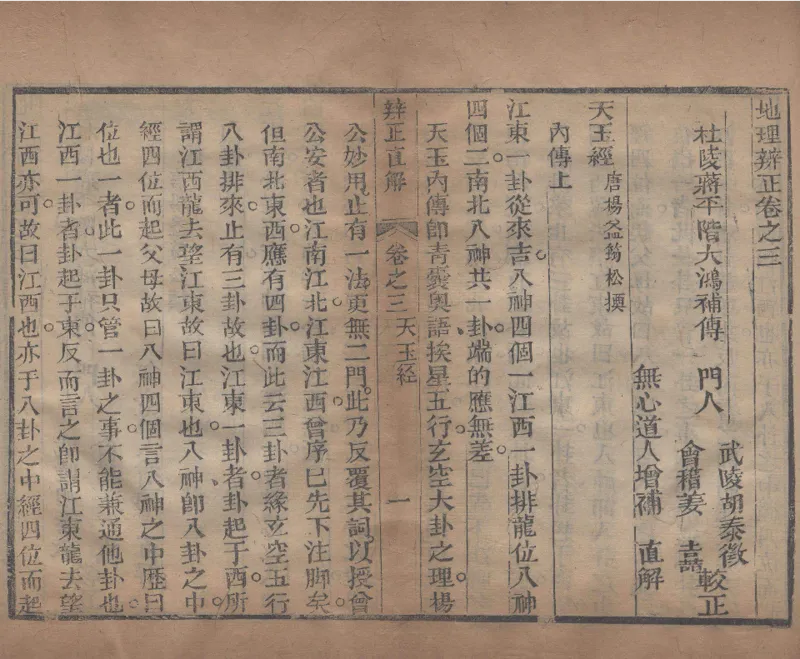 地理辨正卷之三
杜陵蔣平階大鴻補傳
門人
武陵胡泰徵
會稽姜垚
較正
無心道人增補
直解
天玉經
唐楊益筠松撰
內傳上
江東一卦從來吉八神四個一江西一卦排龍位八神
四個二南北八神共一卦端的應無差
天玉內傳卽青囊奧語挨星五行玄空大卦之理楊
公妙用止有一法更無二門此乃反覆其詞以授曾
公安者也江南江北江東江西曾序巳先下注脚矣
但南北東西應有四卦而此云三卦者緣玄空五行
八卦排來止有三卦故也江東一卦者卦起于西所
謂江西龍去望江東故曰江東也八神卽八卦之中
經四位而起父母故曰八神四個言八神之中歷曰
位也一者此一卦只管一卦之事不能兼通他卦也
江西一卦者卦起于東反而言之卽謂江東龍去望
江西亦可故曰江西也亦于八卦之中經四位而起
辨正直解
卷之三
天玉經
一